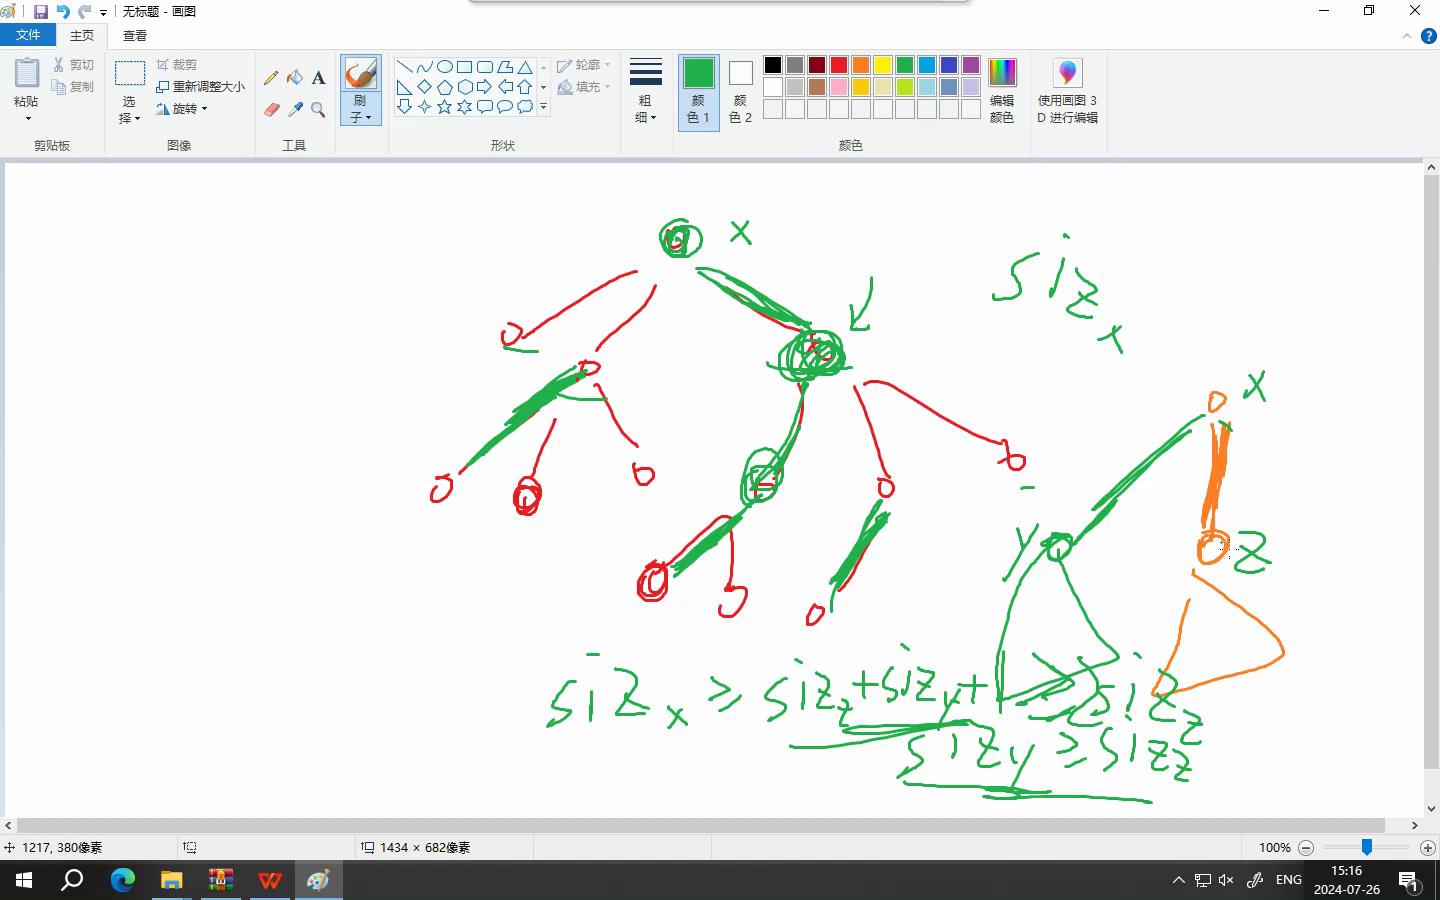 无标题 - 画图
文件 主页 查看
粘贴 剪切 复制 剪贴板
选择 裁剪 重新调整大小 旋转 图像
A 工具
刷子
轮廓 填充 形状
粗细
颜色 1 颜色 2 编辑颜色 颜色
使用画图 3D 进行编辑
x
siz x
x
y z
siz x ≥ siz z + siz y + 1 > siz z
siz y ≥ siz z
1217, 380像素 1434 × 682像素 100%
ENG 15:16
2024-07-26 1